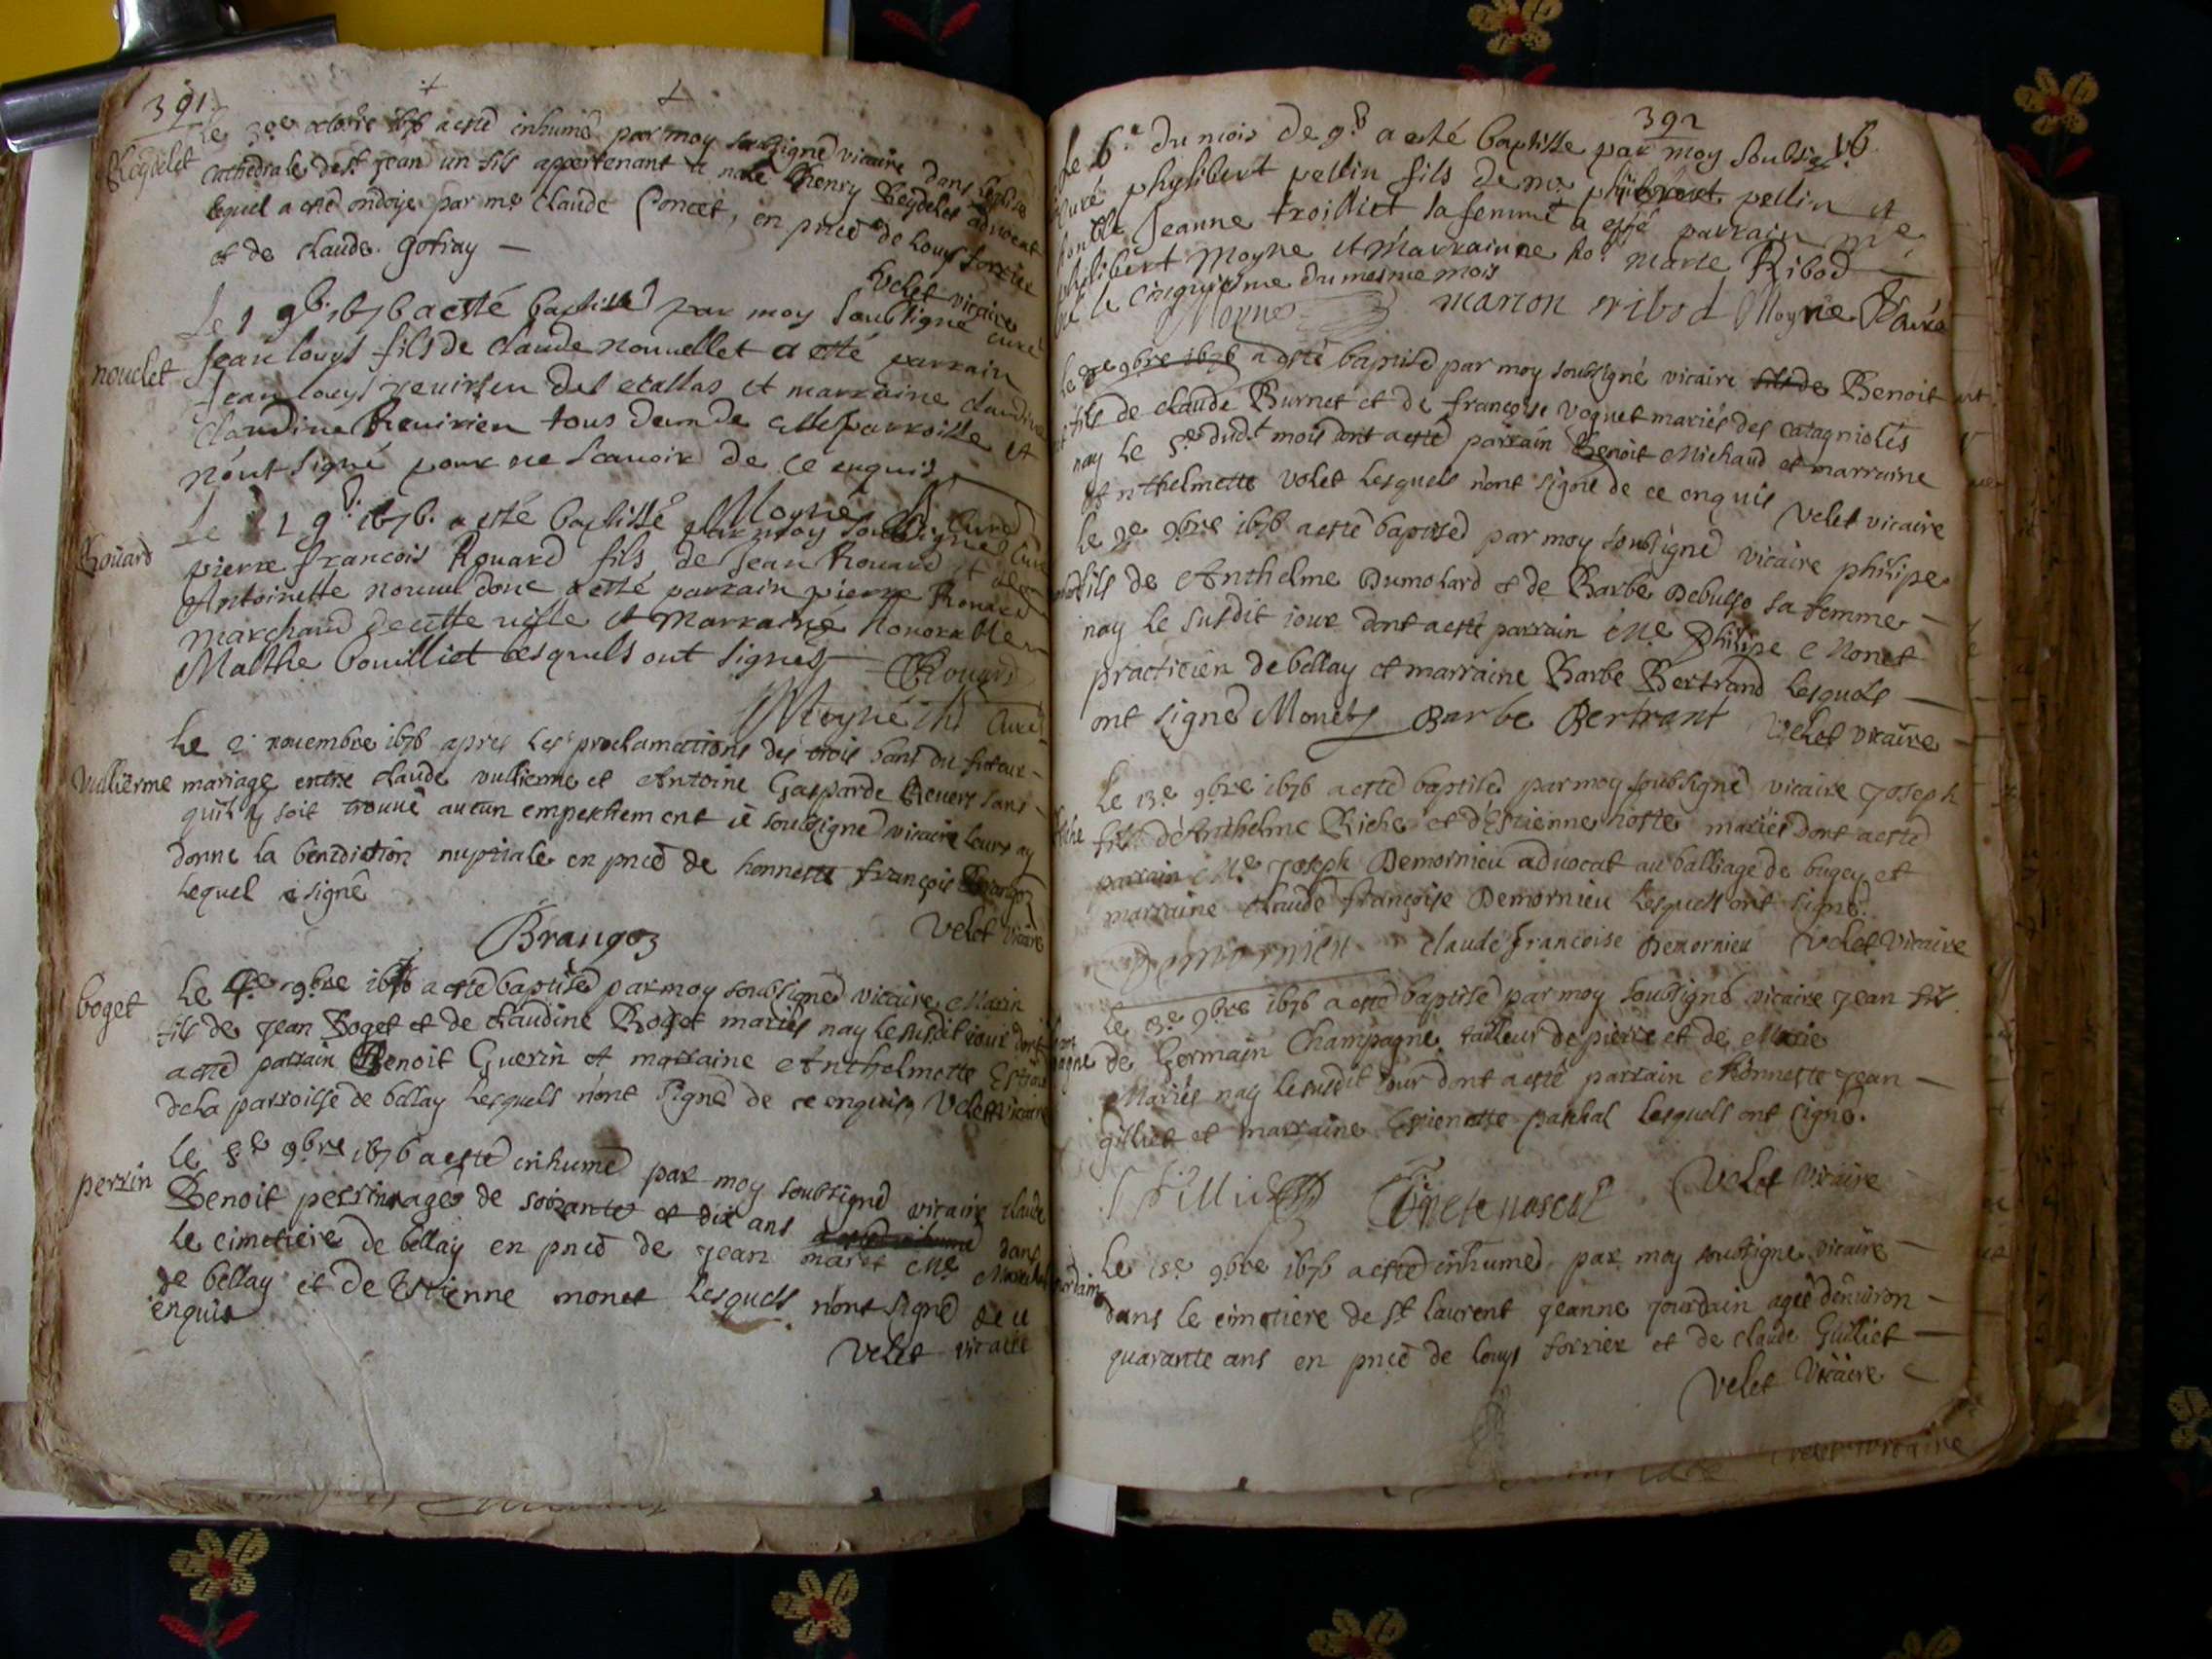 391
Le 30e octobre 1676 a esté inhumé par moy soubsigné vicaire dans l'eglise
Regdelet cathedrale de st Jean un fils appertenant a noble henry Regdelet advocat
lequel a esté ondoyé par me Claude Poncet, en pnce de Louys forrier
et de claude gofray —
Velet vicaire
Le 1 9b. 1676 a esté baptisé par moy soubsigné curé
nouelet Jean louys fils de claude nouuellet a esté parrain
Jean louys reuirien des ecassas et marraine claudine
claudine Reuirien tous deux de cette parroisse et
n'ont signé pour ne scauoir de ce enquis
Moyne Curé
Le 1 9b. 1676. a esté baptissé par moy soubsigné Curé
Roüard pierre francois Rouard fils de Jean Rouard et de
Antoinette a esté parrain pierre Rouard
marchand de cette uille et Marraine honorable
Malthe bouilliet lesquels ont signés — Rouard
Moyne Curé
Le 2 nouembre 1676 apres les proclamations des trois bans du futeur
Vulliérme mariage entre claude vullierme et Antoine Gasparde Reuert sans
quil y soit trouué aucun empechement ie soubsigné vicaire leurs ay
donne la benediction nuptiale en pnce de honneste françois Brangoz
lequel a signé
Brangoz Velet vicaire
boget Le 4e 9bre 1676 a esté baptisé par moy soubsigné vicaire Marin
fils de Jean Boget et de claudine Roget mariés nay le susdit iour dont
a esté parrain Benoit Guerin et marraine Anthelmette
de la parroisse de bellay lesquels n'ont signé de ce enquis Velet vicaire
Le 8e 9bre 1676 a esté inhumé par moy soubsigné vicaire claude
perrin Benoit perrin agé de soixante et dix ans a esté inhumé dans
le cimetiere de bellay en pnce de Jean maret Me
de bellay et de Estienne monet lesquels n'ont signé de ce
enquis
Velet vicaire
392
Le 6e du mois de 9b a esté baptisse par moy soubsig
curé phylibert pellin fils de me philibert pellin et
honble Jeanne troilliet sa femme a esté parrain me
philibert Moyne et Marrainne ho. marie Ribod
né le cinquiesme du mesme mois
Moyne marion ribod Moyne Curé
Le 9bre 1676 a esté baptisé par moy soubsigné vicaire fils de Benoit
fils de claude Burnet et de françoise voquet mariés des catagnioles
nay le 5e dudt mois dont a esté parrain Benoit Michaud et marraine
Anthelmette volet lesquels n'ont signé de ce enquis Velet vicaire
Le 9e 9bre 1676 a esté baptised par moy soubsigné vicaire philipe
fils de Anthelme Dumolard et de Barbe Debusso sa femme —
nay le susdit iour dont a esté parrain Me Philipe Monet
practicien de bellay et marraine Barbe Bertrand lesquels —
ont signé Monet Barbe Bertrant Velet vicaire
Le 13e 9bre 1676 a esté baptisé par moy soubsigné vicaire Joseph
fils d'Anthelme Riche et d'Estienne hoste mariés dont a esté
parrain Me Joseph Demornieu advocat au balliage de bugey et
marraine claude françoise Demornieu lesquels ont signé.
Demornieu claude françoise Demornieu Velet Vicaire
Le 13e 9bre 1676 a esté baptisé par moy soubsigné vicaire Jean fils
de Germain Champagne tailleur de pierre et de Marie
Mariés nay le susdit iour dont a esté parrain honneste Jean —
gilliet et marraine Estienette paschal lesquels ont signé.
Gilliet Velet Vicaire
Le 18e 9bre 1676 a esté inhumé par moy soubsigné vicaire —
dans le cimetiere de st laurent Jeanne Jourdain agée d'enuiron —
quarante ans en pnce de louys forrier et de claude Guilliet —
Velet Vicaire